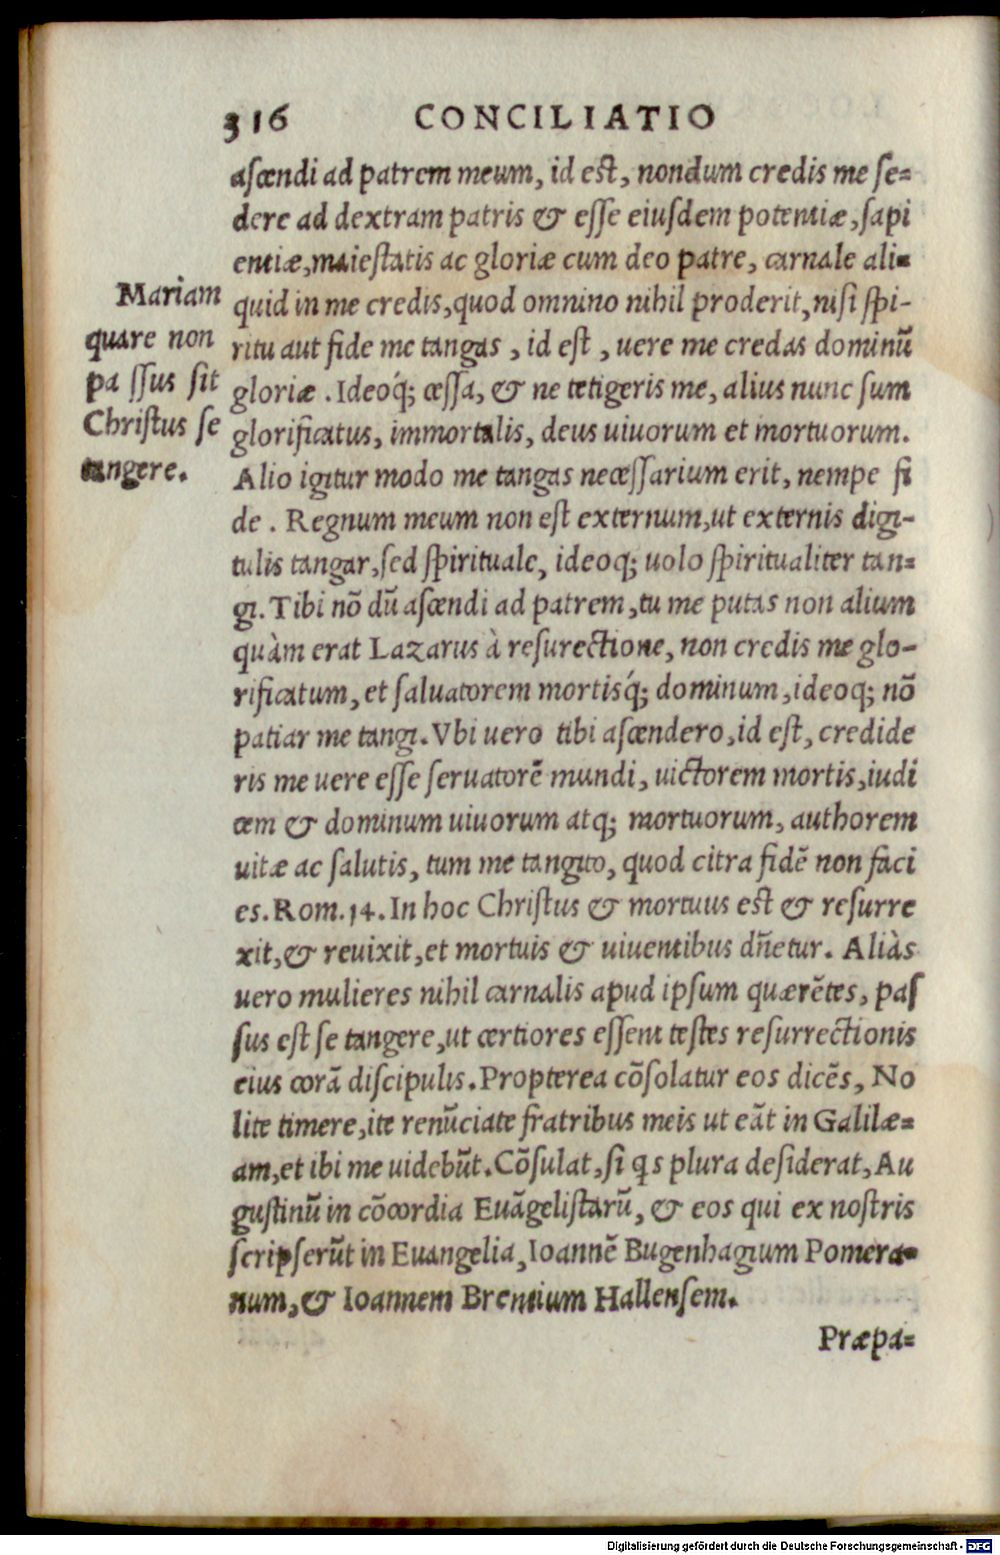 316 CONCILIATIO
ascendi ad patrem meum, id est, nondum credis me se=
dere ad dextram patris & esse eiusdem potentiæ, sapi
entiæ, maiestatis ac gloriæ cum deo patre, carnale ali=
quid in me credis, quod omnino nihil proderit, nisi spi-
ritu aut fide me tangas , id est , uere me credas dominũ
gloriæ . Ideoq́; cessa, & ne tetigeris me, alius nunc sum
glorificatus, immortalis, deus uiuorum et mortuorum.
Alio igitur modo me tangas necessarium erit, nempe fi
de . Regnum meum non est externum, ut externis digi-
tulis tangar, sed spirituale, ideoq; uolo spiritualiter tan=
gi. Tibi nõ dũ ascendi ad patrem, tu me putas non alium
quàm erat Lazarus à resurectione, non credis me glo-
rificatum, et saluatorem mortisq́; dominum, ideoq; nõ
patiar me tangi. Vbi uero tibi ascendero, id est, credide
ris me uere esse seruatorẽ mundi, uictorem mortis, iudi
cem & dominum uiuorum atq; mortuorum, authorem
uitæ ac salutis, tum me tangito, quod citra fidẽ non faci
es. Rom. 14. In hoc Christus & mortuus est & resurre
xit, & reuixit, et mortuis & uiuentibus dñetur. Aliàs
uero mulieres nihil carnalis apud ipsum quærẽtes, pas
sus est se tangere, ut certiores essent testes resurrectionis
eius corã discipulis. Propterea cõsolatur eos dicẽs, No
lite timere, ite renũciate fratribus meis ut eãt in Galilæ=
am, et ibi me uidebũt. Cõsulat, si qs plura desiderat, Au
gustinũ in cõcordia Euãgelistarũ, & eos qui ex nostris
scripserũt in Euangelia, Ioannẽ Bugenhagium Pomera=
num, & Ioannem Brentium Hallensem.
Præpa=
Mariam
quare non
pa ssus sit
Christus se
tangere.
Digitalisierung gefördert durch die Deutsche Forschungsgemeinschaft - DFG